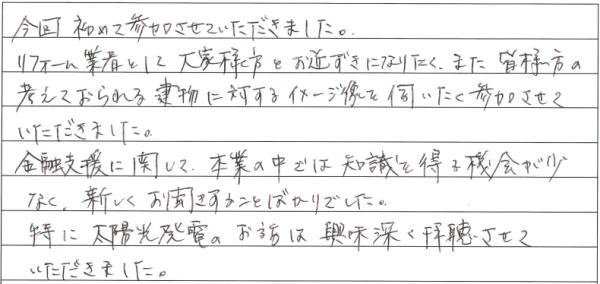 今回 初めて参加させていただきました。
リフォーム業者として大家様方とお近ずきになりたく、また 皆様方の
考えておられる建物に対するイメージ像を伺いたく参加させて
いただきました。
金融支援に関して、本業の中では知識を得る機会が少
なく、新しくお聞きすることばかりでした。
特に太陽光発電のお話は興味深く拝聴させて
いただきました。